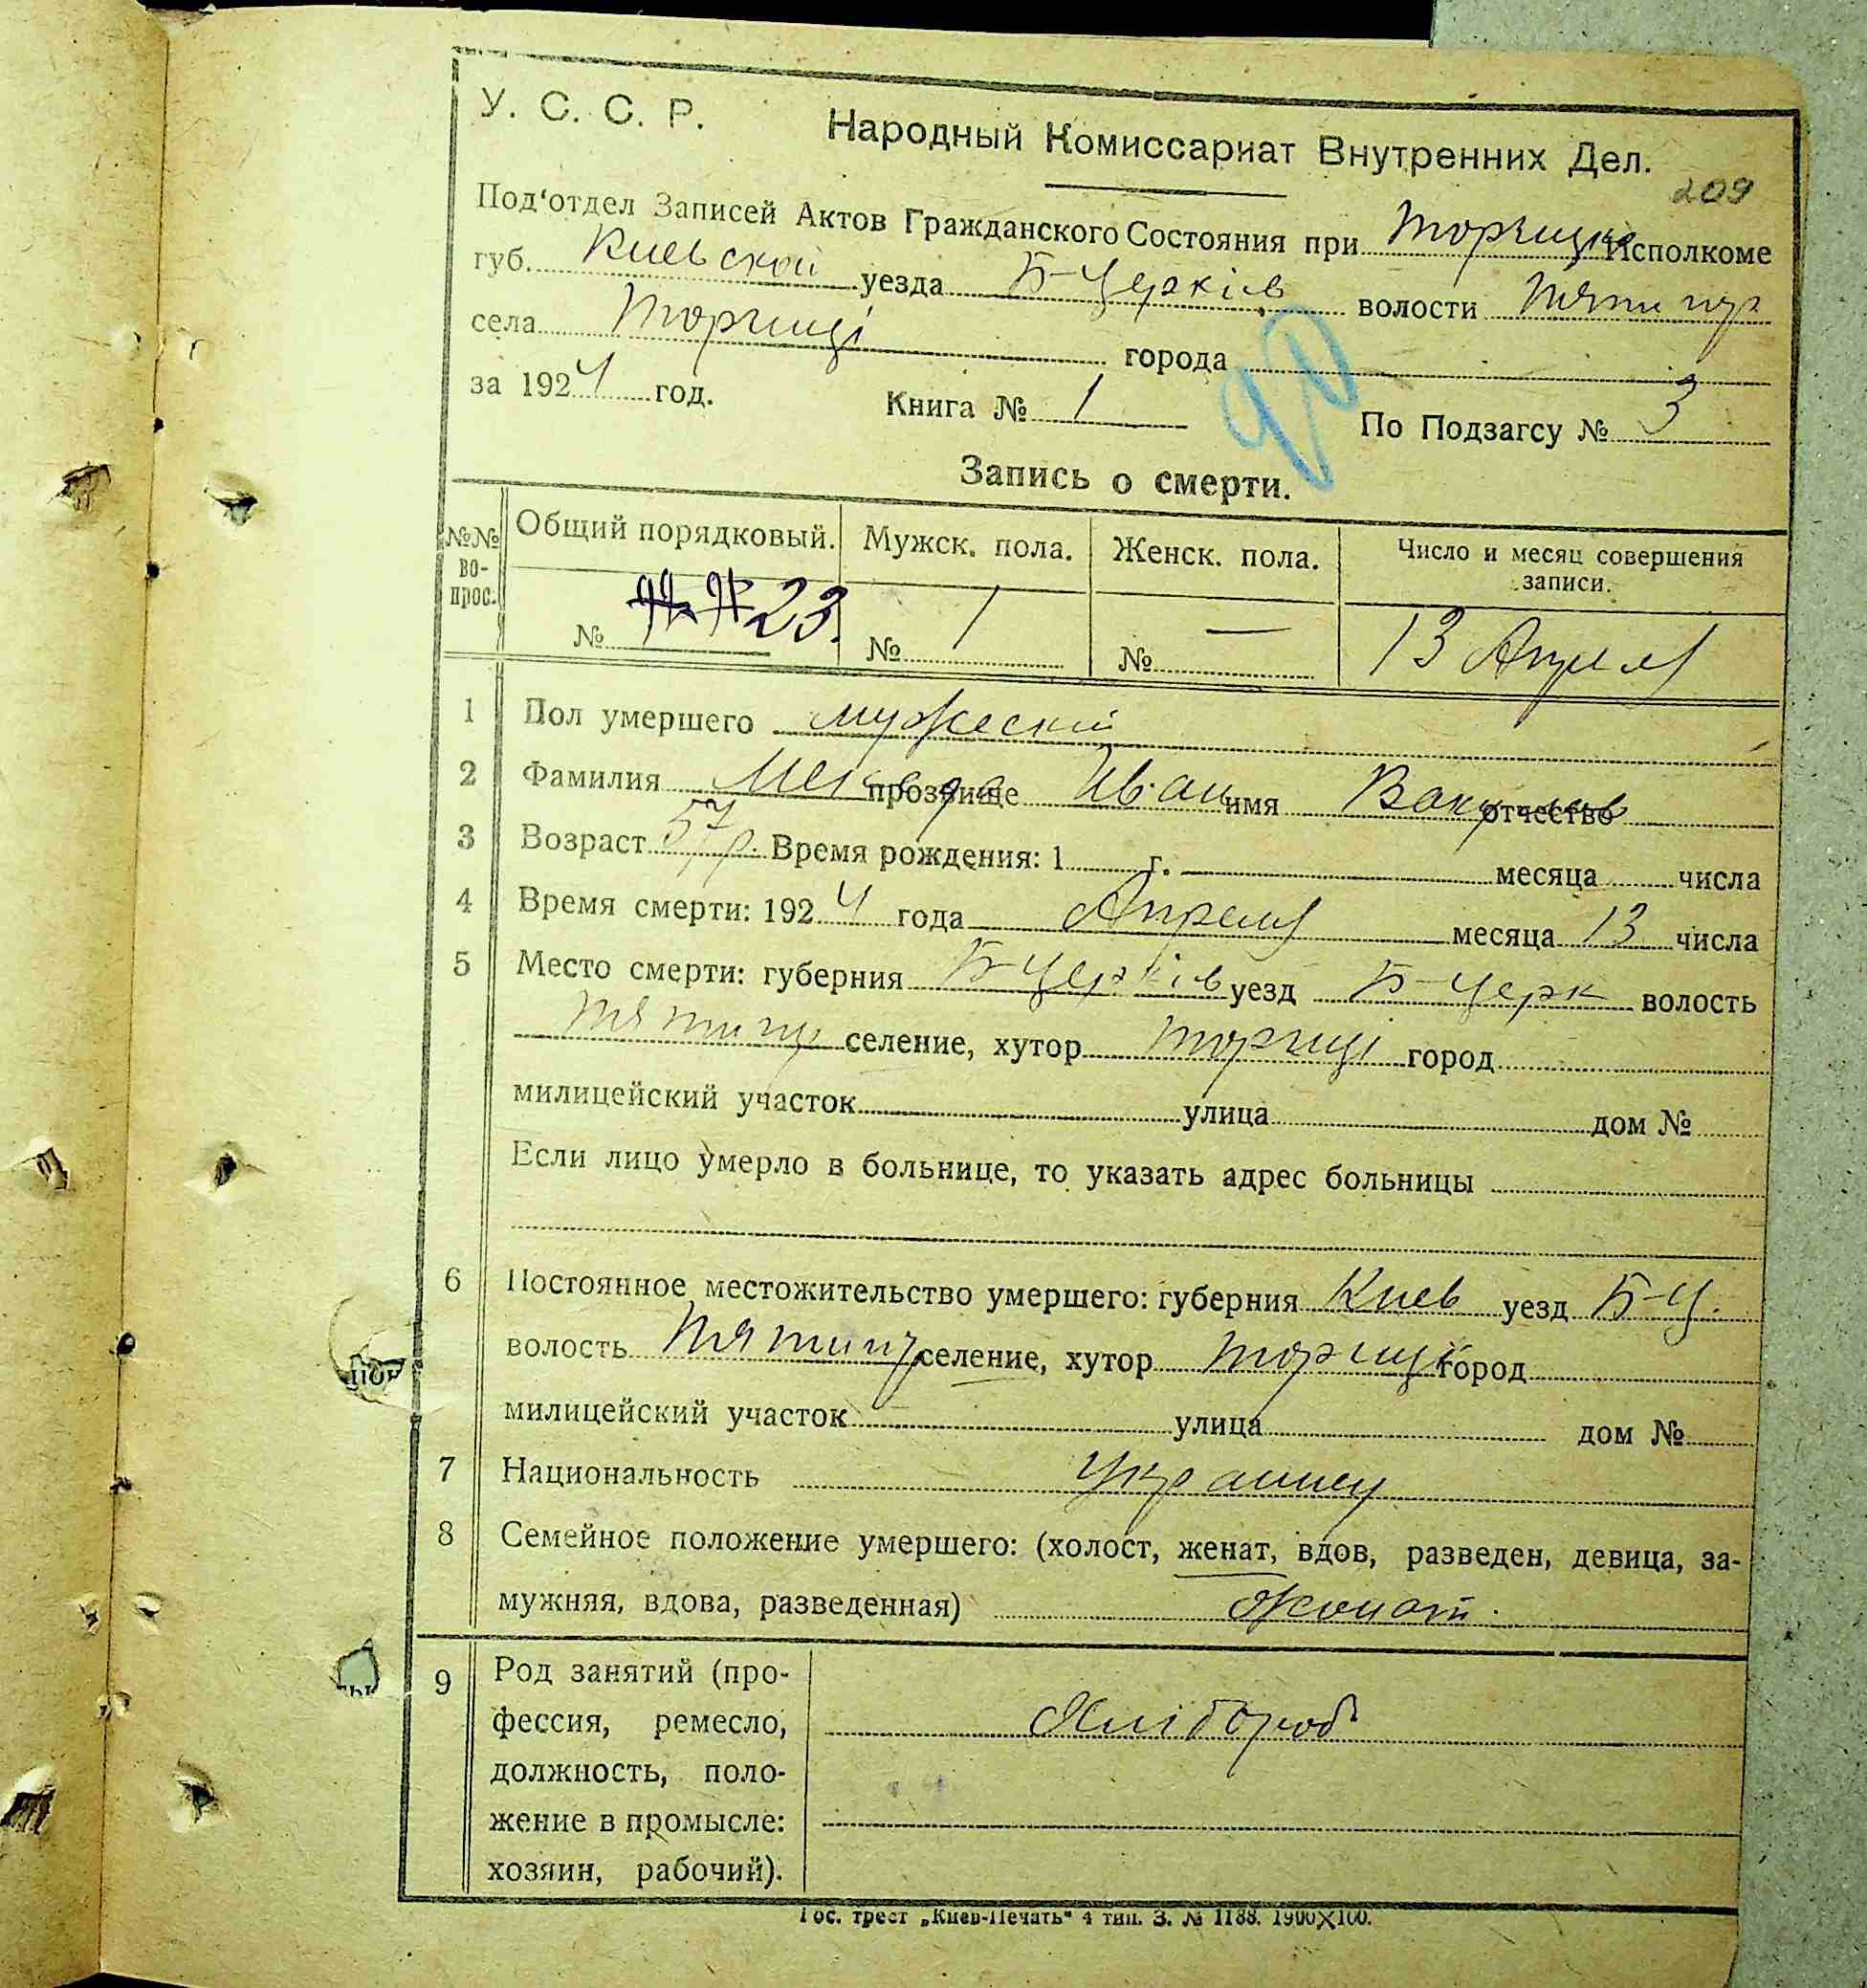 У. С. С. Р. Народный Комиссариат Внутренних Дел.
209
Под‘отдел Записей Актов Гражданского Состояния при Исполкоме
губ. Киевской уезда Б-Церків волости Пятигор
села Торчиці города
за 1924 год. Книга № 1 По Подзагсу № 3
90
Запись о смерти.
№№ во-прос. Общий порядковый. Мужск. пола. Женск. пола. Число и месяц совершения записи.
№ 23. № 1 № — 13 Апреля
1 Пол умершего мужеский
2 Фамилия прозвище Иван имя Вакулов отчество
3 Возраст 57 р. Время рождения: 1 г. месяца числа
4 Время смерти: 1924 года Апреля месяца 13 числа
5 Место смерти: губерния Б-Церків уезд Б-Черк волость
Пятигор селение, хутор Торчиці город
милицейский участок улица дом №
Если лицо умерло в больнице, то указать адрес больницы
6 Постоянное местожительство умершего: губерния Киев уезд Б-Ц.
волость Пятигор селение, хутор Торчиці город
милицейский участок улица дом №
7 Национальность
8 Семейное положение умершего: (холост, женат, вдов, разведен, девица, за-
мужняя, вдова, разведенная) Жонат.
9 Род занятий (про-
фессия, ремесло, Хлібороб
должность, поло-
жение в промысле:
хозяин, рабочий).
Гос. трест „Киев-Печать“ 4 тип. З. № 1188. 1900Х100.